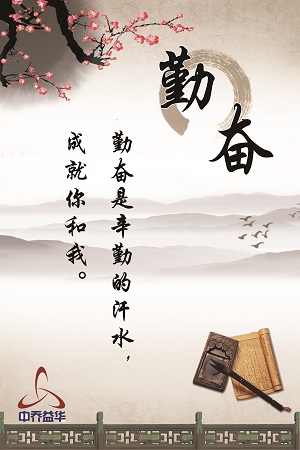 勤奋
勤奋是辛勤的汗水，
成就你和我。
中乔益华